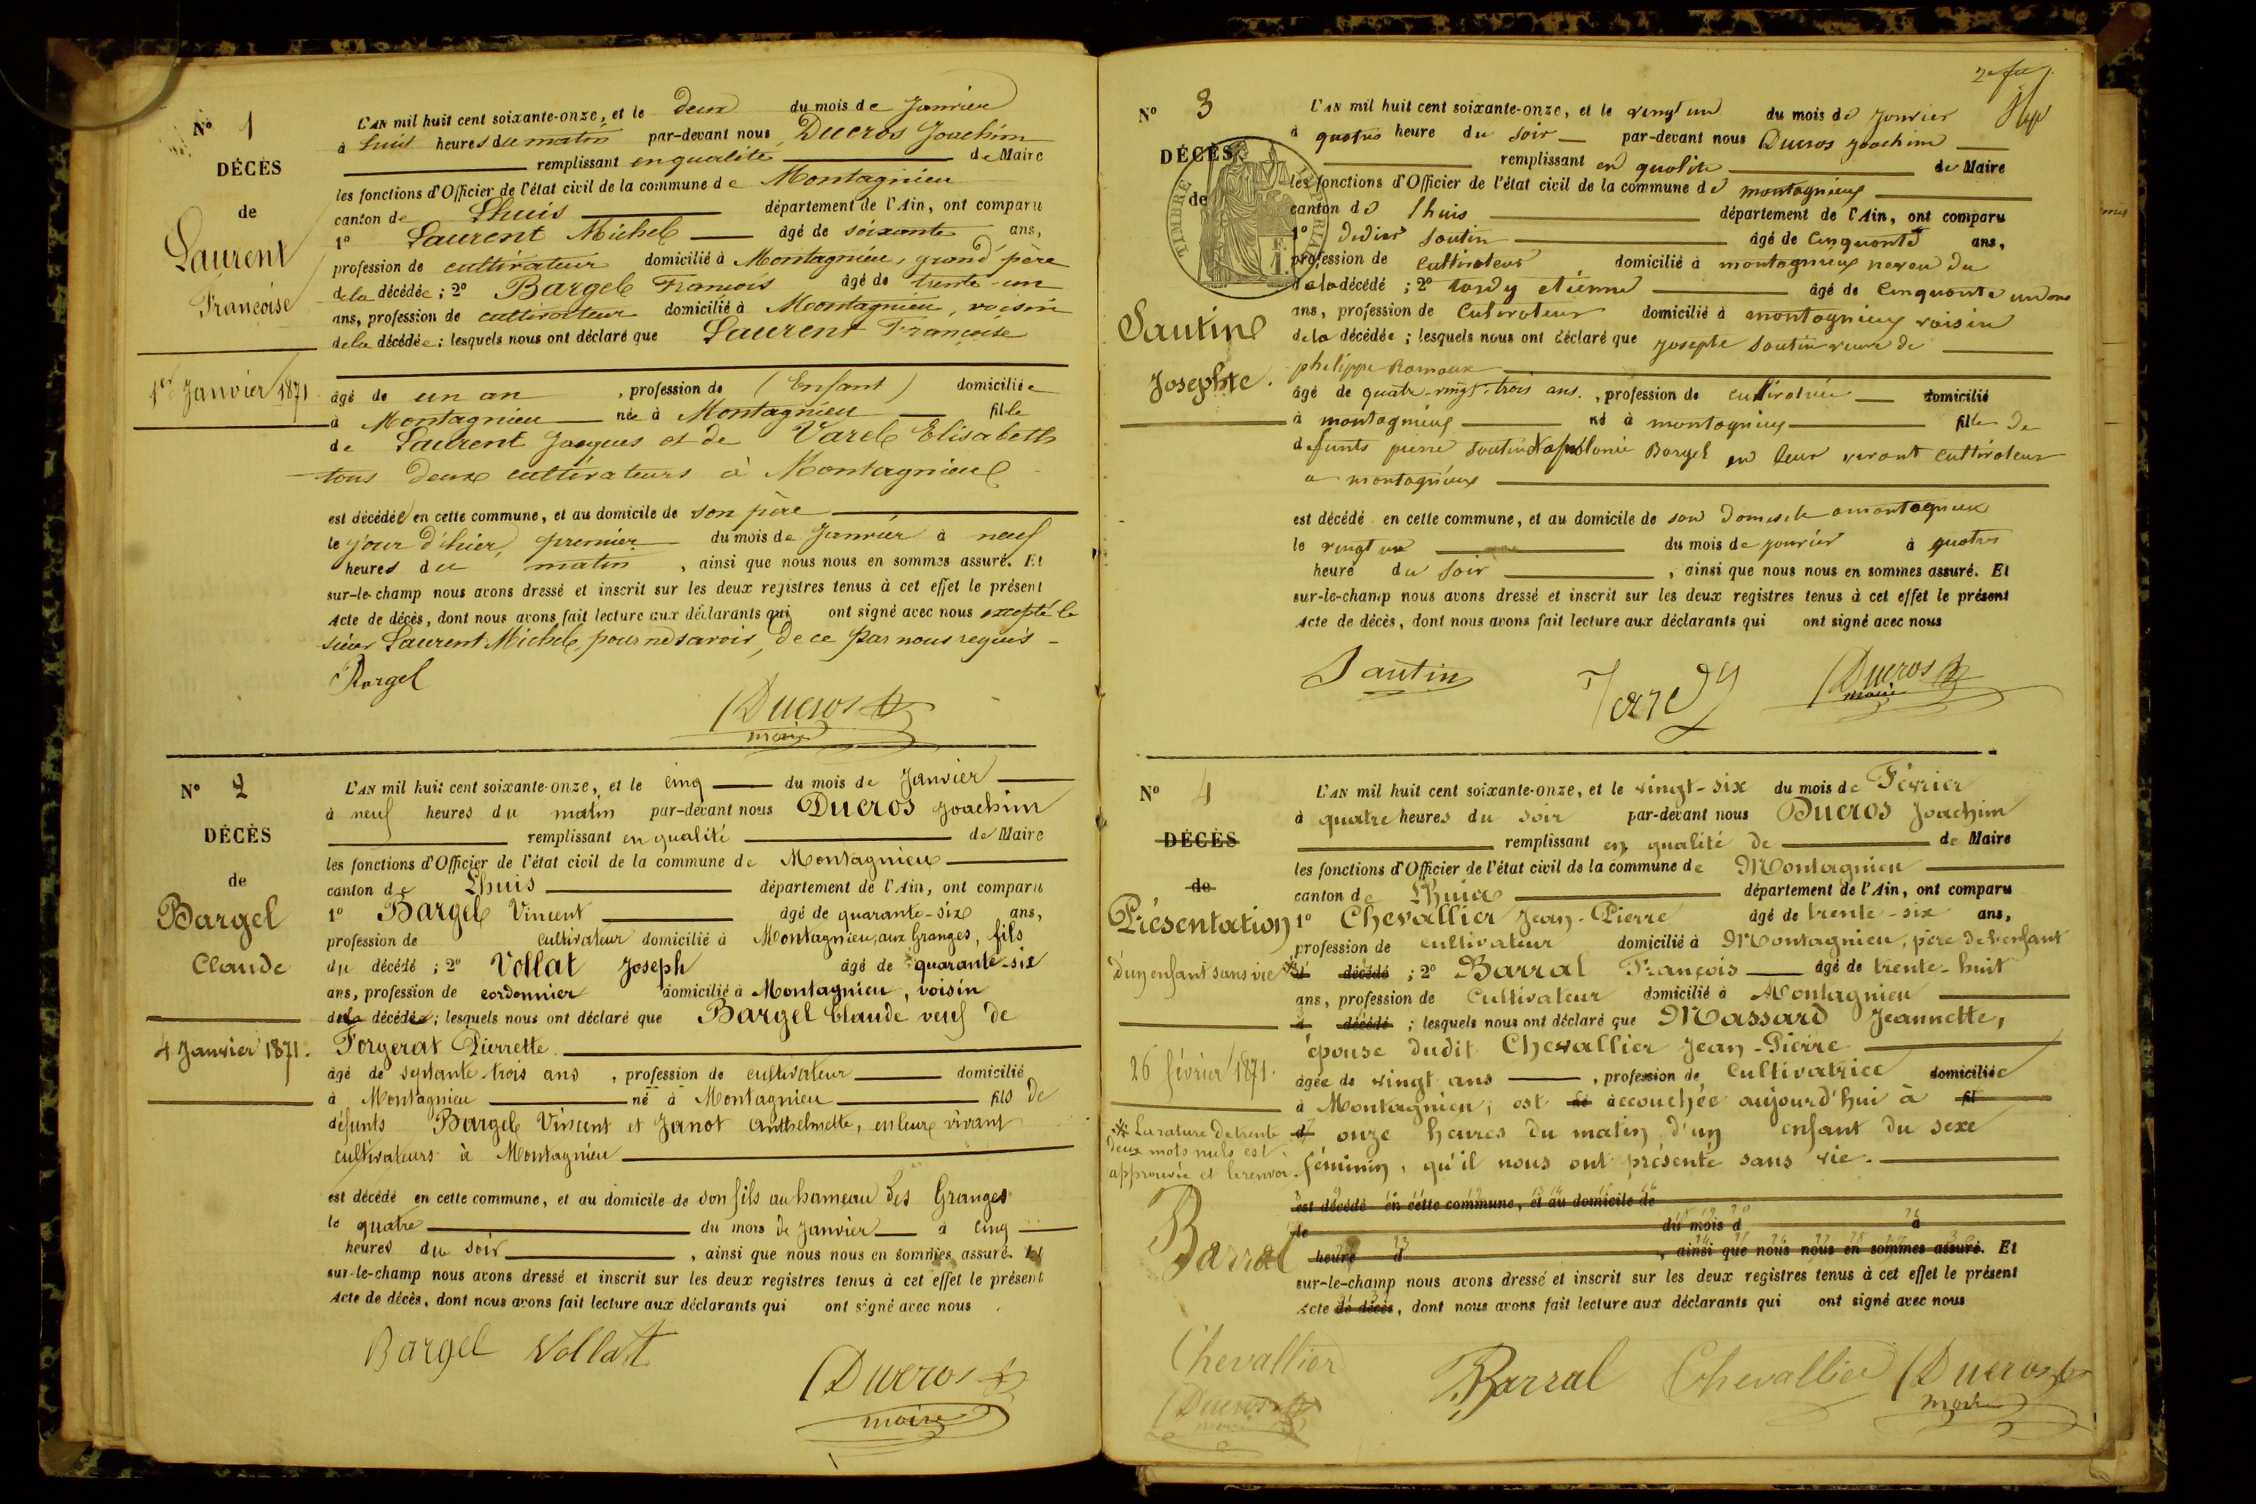 N° 1
DÉCÈS
de
Laurent
Françoise
1er Janvier 1871
L'AN mil huit cent soixante-onze, et le deux du mois de Janvier
à huit heures du matin par-devant nous Ducros Joachim
remplissant en qualité de Maire
les fonctions d'Officier de l'état civil de la commune de Montagnieu
canton de Lhuis département de l'Ain, ont comparu
1° Laurent Michel âgé de soixante ans,
profession de cultivateur domicilié à Montagnieu, grand'père
de la décédée ; 2° Bargel François âgé de trente-un
ans, profession de cultivateur domicilié à Montagnieu, voisin
de la décédée ; lesquels nous ont déclaré que Laurent Françoise
âgé de un an , profession de (Enfant) domiciliée
à Montagnieu née à Montagnieu fille
de Laurent Jacques et de Varel Elisabeth
tous deux cultivateurs à Montagnieu
est décédée en cette commune, et au domicile de son père
le jour d'hier, premier du mois de Janvier à neuf
heures du matin , ainsi que nous nous en sommes assuré. Et
sur-le-champ nous avons dressé et inscrit sur les deux registres tenus à cet effet le présent
Acte de décès, dont nous avons fait lecture aux déclarants qui ont signé avec nous excepté le
sieur Laurent Michel, pour ne savoir, de ce par nous requis
Bargel
Ducros
maire
N° 2
DÉCÈS
de
Bargel
Claude
4 Janvier 1871.
L'AN mil huit cent soixante-onze, et le cinq du mois de Janvier
à neuf heures du matin par-devant nous Ducros Joachim
remplissant en qualité de Maire
les fonctions d'Officier de l'état civil de la commune de Montagnieu
canton de Lhuis département de l'Ain, ont comparu
1° Bargel Vincent âgé de quarante-six ans,
profession de cultivateur domicilié à Montagnieu, aux Granges, fils
du décédé ; 2° Vollat Joseph âgé de quarante-six
ans, profession de cordonnier domicilié à Montagnieu, voisin
décédé ; lesquels nous ont déclaré que Bargel Claude veuf de
Forgerat Pierrette
âgé de septante trois ans , profession de cultivateur domicilié
à Montagnieu né à Montagnieu fils de
défunts Bargel Vincent et Janot Anthelmette, en leurs vivant
cultivateurs à Montagnieu
est décédé en cette commune, et au domicile de son fils au hameau des Granges
le quatre du mois de Janvier à cinq
heures du soir , ainsi que nous nous en sommes assuré. Et
sur-le-champ nous avons dressé et inscrit sur les deux registres tenus à cet effet le présent
Acte de décès, dont nous avons fait lecture aux déclarants qui ont signé avec nous
Bargel Vollat
Ducros
maire
N° 3
DÉCÈS
de
Sautin
Josephte.
TIMBRE
L'AN mil huit cent soixante-onze, et le vingt un du mois de Janvier
à quatre heure du soir par-devant nous Ducros Joachim
remplissant en qualite de Maire
les fonctions d'Officier de l'état civil de la commune de montagnieux
canton de lhuis département de l'Ain, ont comparu
1° didier Soutin âgé de Cinquante ans,
profession de cultivateur domicilié à montagnieux neveu du
de la décédé ; 2° tardy etienne âgé de Cinquante un ans
ans, profession de Cultivateur domicilié à montagnieux voisin
de la décédée ; lesquels nous ont déclaré que Josephte Soutin veuve de
philippe Ramoux
âgé de quatre-vingt-trois ans. , profession de cultivatrice domicilié
à montagnieux né à montagnieux fille de
defunts pierre Soutin apolonie Bargel en leur vivant cultivateur
a montagnieux
est décédé en cette commune, et au domicile de son domicile a montagnieux
le vingt un du mois de janvier à quatre
heure du soir , ainsi que nous nous en sommes assuré. Et
sur-le-champ nous avons dressé et inscrit sur les deux registres tenus à cet effet le présent
Acte de décès, dont nous avons fait lecture aux déclarants qui ont signé avec nous
Sautin Tardy Ducros
maire
N° 4
DÉCÈS
de
Présentation
d'un enfant sans vie
26 février 1871.
La rature de trente
deux mots nuls est
approuvée et le renvoi.
Barral
Chevallier
Ducros
maire
L'AN mil huit cent soixante-onze, et le vingt-six du mois de Février
à quatre heures du soir par-devant nous Ducros Joachim
remplissant en qualité de de Maire
les fonctions d'Officier de l'état civil de la commune de Montagnieu
canton de Lhuis département de l'Ain, ont comparu
1° Chevallier Jean-Pierre âgé de trente-six ans,
profession de cultivateur domicilié à Montagnieu, père de l'enfant
d décédé ; 2° Barral François âgé de trente-huit
ans, profession de Cultivateur domicilié à Montagnieu
d décédé ; lesquels nous ont déclaré que Massard Jeannette,
épouse dudit Chevallier Jean-Pierre
âgée de vingt ans , profession de Cultivatrice domiciliée
à Montagnieu, est né accouchée aujourd'hui à fil
d onze heures du matin d'un enfant du sexe
féminin, qu'il nous ont présenté sans vie.
est décédé en cette commune, et au domicile de
le du mois d à
heure d , ainsi que nous nous en sommes assuré. Et
sur-le-champ nous avons dressé et inscrit sur les deux registres tenus à cet effet le présent
Acte de décès, dont nous avons fait lecture aux déclarants qui ont signé avec nous
Barral Chevallier Ducros
maire